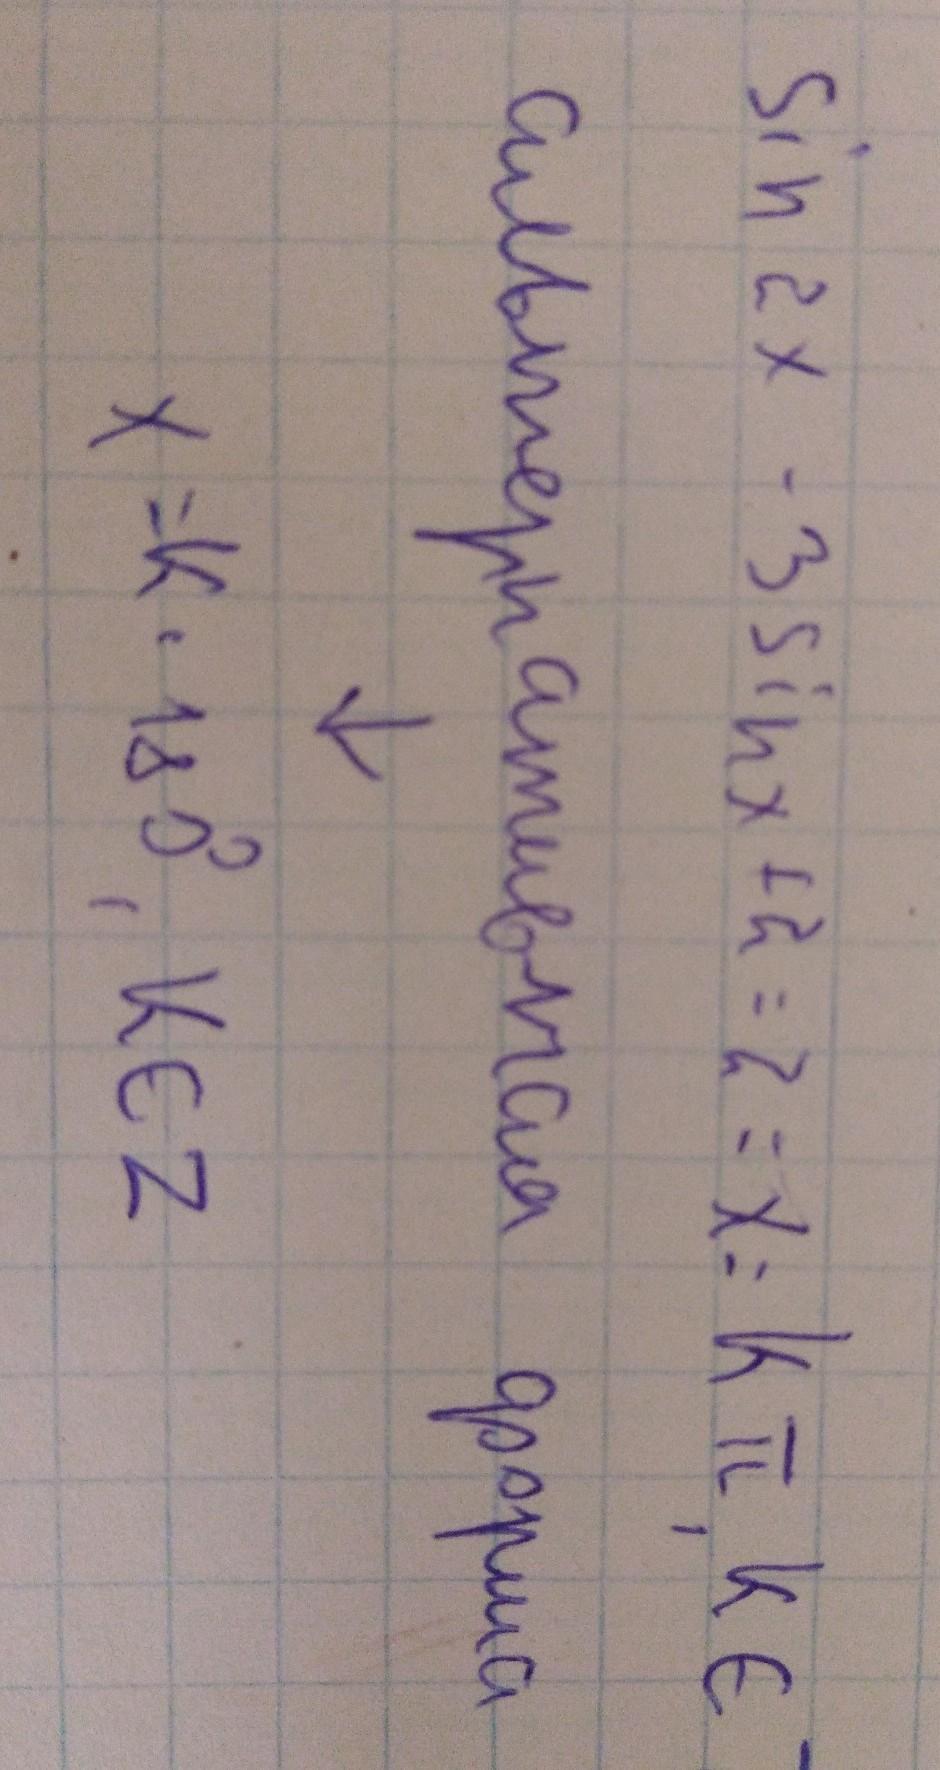 Sin 2x - 3 sin x + 2 = 2 = x = k π, k ∈
альтернативная форма
↓
x = k · 180°, k ∈ Z